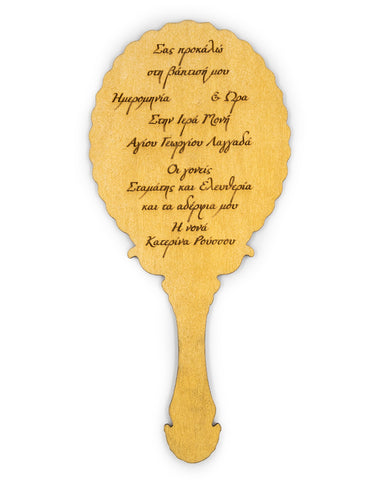 Σας προκαλώ
στη βάπτισή μου
Ημερομηνία & Ώρα
Στην Ιερά Μονή
Αγίου Γεωργίου Λαγγαδά
Οι γονείς
Σταμάτης και Ελευθερία
και τα αδέρφια μου
Η νονά
Κατερίνα Ρούσσου